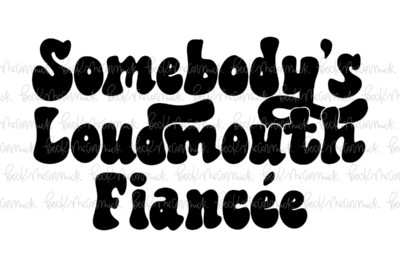 Somebody's
Loudmouth
Fiancée